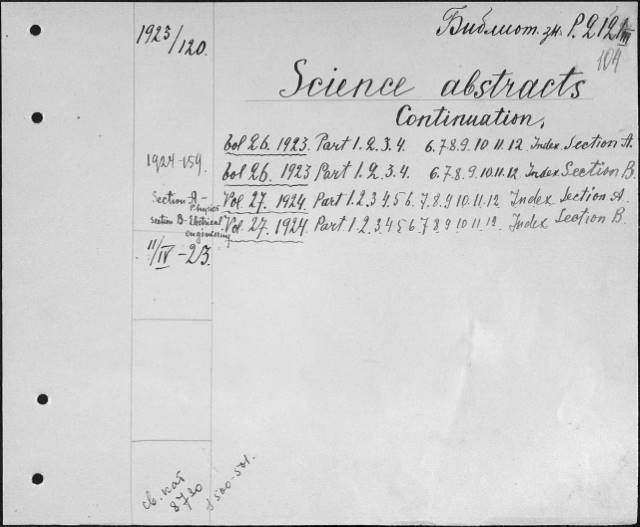 1923/120.
Библиот. зн. P. 2121 III
104
Science abstracts
Continuation.
vol 26. 1923. Part 1. 2. 3. 4. 6. 7. 8. 9. 10. 11. 12 Index Section A.
1924-159.
vol 26. 1923 Part 1. 2. 3. 4. 6. 7. 8. 9. 10. 11. 12 Index Section B.
Section A - Physics
Vol 27. 1924. Part. 1. 2. 3 4. 5. 6. 7. 8. 9 10. 11. 12. Index Section A.
section B - Eletrical engineering
Vol 27. 1924 Part. 1. 2. 3. 4. 5. 6. 7. 8. 9. 10. 11. 12. Index Section B.
11/IV - 23.
св. кат
8730